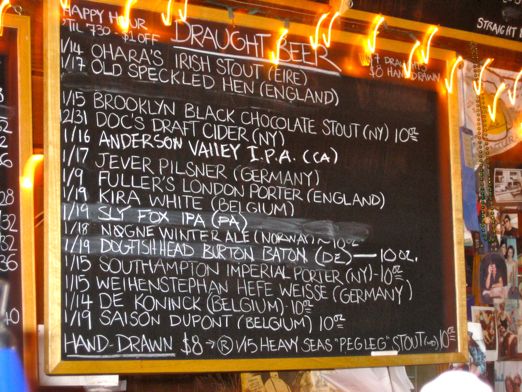 HAPPY HOUR
'TIL 7:30 - $1 OFF
DRAUGHT BEER
$7 DRAUGHTS
$8 HAND DRAWN
STRAIGHT
1/14 OHARA'S IRISH STOUT (EIRE)
1/17 OLD SPECKLED HEN (ENGLAND)
1/15 BROOKLYN BLACK CHOCOLATE STOUT (NY) 10 OZ
12/31 DOC'S DRAFT CIDER (NY)
1/16 ANDERSON VALLEY I.P.A. (CA)
1/17 JEVER PILSNER (GERMANY)
1/9 FULLER'S LONDON PORTER (ENGLAND)
1/9 KIRA WHITE (BELGIUM)
1/19 SLY FOX IPA (PA)
1/18 NØGNE WINTER ALE (NORWAY) - 10 OZ
1/19 DOGFISHHEAD BURTON BATON (DE) — 10 OZ.
1/15 SOUTHAMPTON IMPERIAL PORTER (NY) - 10 OZ
1/15 WEIHENSTEPHAN HEFE WEISSE (GERMANY)
1/14 DE KONINCK (BELGIUM) 10 OZ
1/19 SAISON DUPONT (BELGIUM) 10 OZ
HAND-DRAWN $8 → (R) 1/15 HEAVY SEAS "PEG LEG" STOUT (MD) 10 OZ